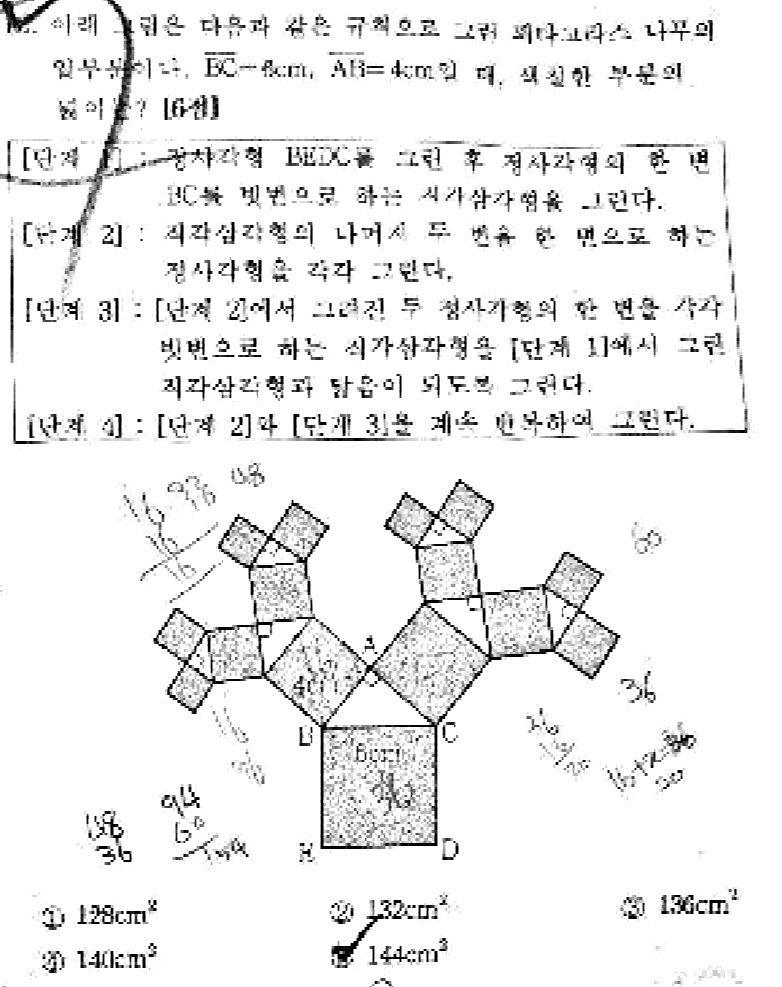 아래 그림은 다음과 같은 규칙으로 그린 피타고라스 나무의
일부분이다. BC=6cm, AB=4cm일 때, 색칠한 부분의
넓이는? [6점]
[단계 1] : 정사각형 BEDC를 그린 후 정사각형의 한 변
BC를 빗변으로 하는 직각삼각형을 그린다.
[단계 2] : 직각삼각형의 나머지 두 변을 한 변으로 하는
정사각형을 각각 그린다.
[단계 3] : [단계 2]에서 그려진 두 정사각형의 한 변을 각각
빗변으로 하는 직각삼각형을 [단계 1]에서 그린
직각삼각형과 닮음이 되도록 그린다.
[단계 4] : [단계 2]와 [단계 3]을 계속 반복하여 그린다.
A
4cm
B
C
6cm
36
D
60
36
36
16
20
94
60
① 128cm²
② 132cm²
③ 136cm²
④ 140cm²
144cm²